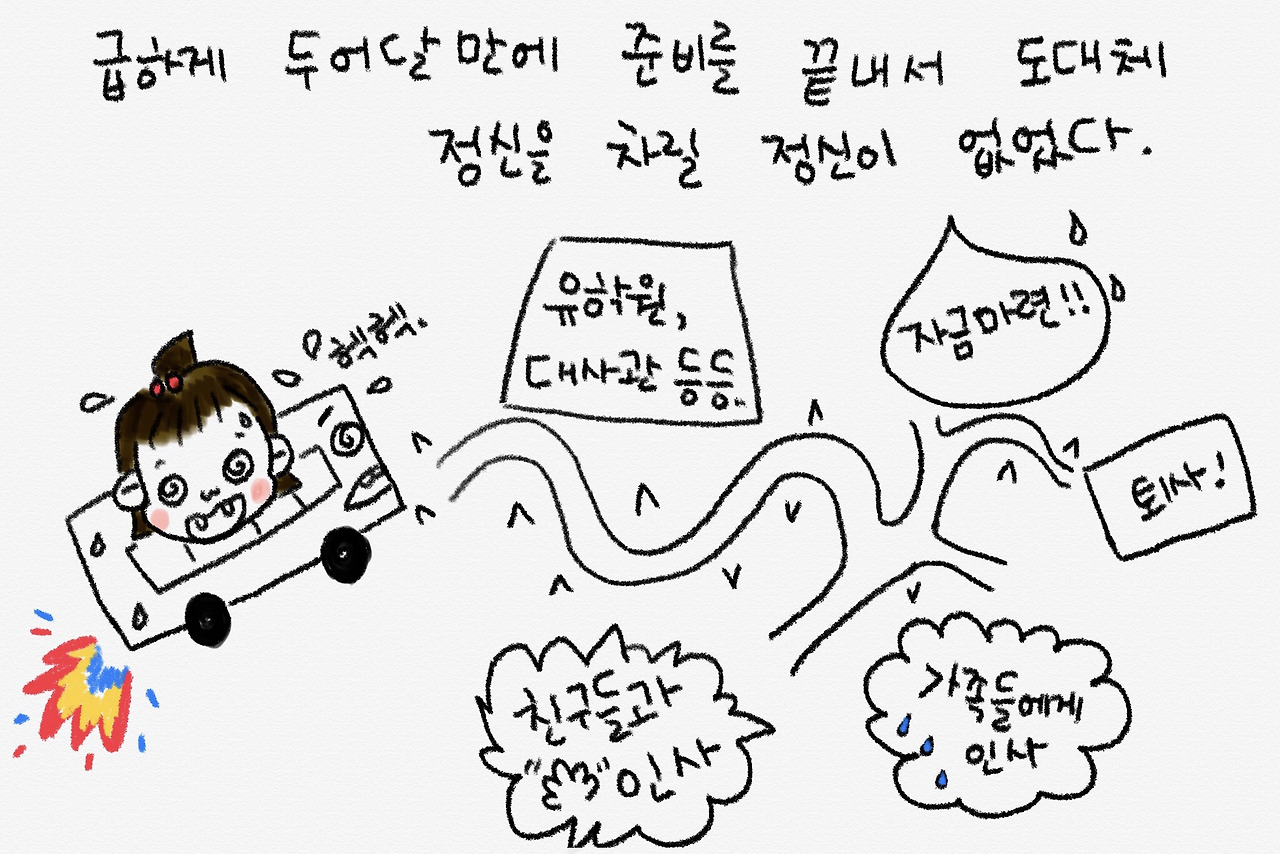 급하게 두어달만에 준비를 끝내서 도대체
정신을 차릴 정신이 없었다.
헥헥.
유학원,
대사관 등등..
자금마련!!
퇴사!
친구들과
" "인사
가족들에게
인사